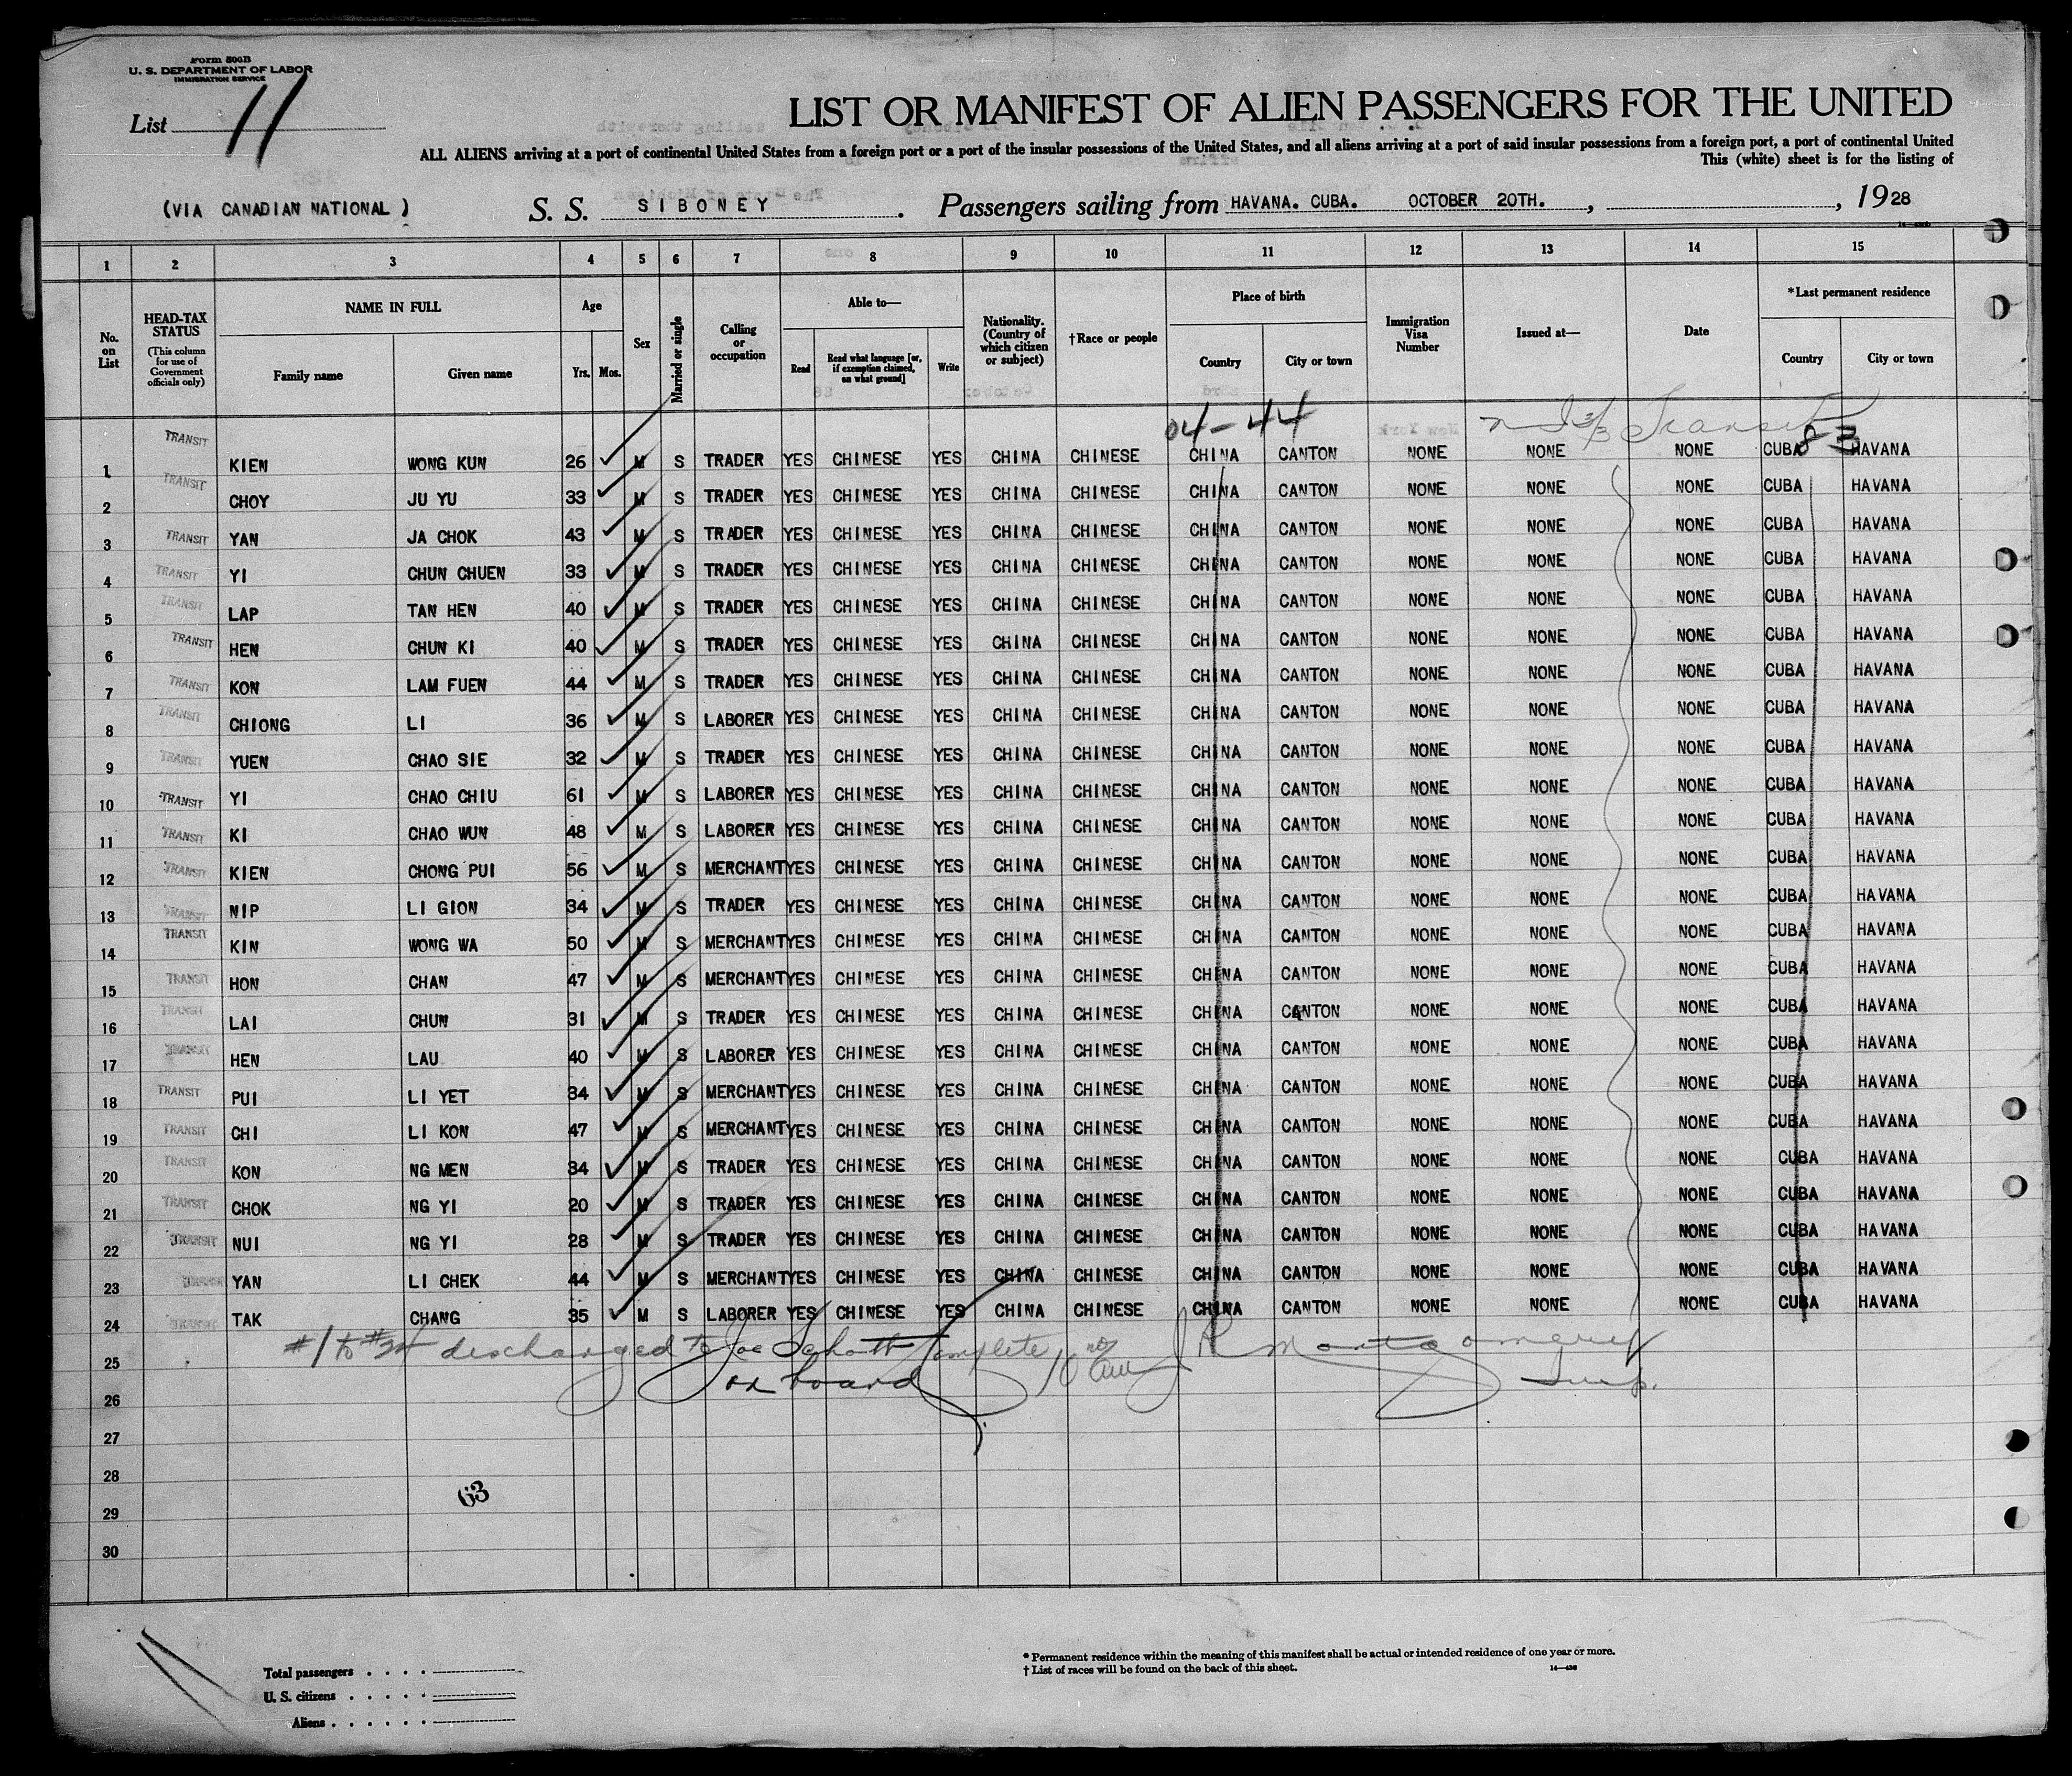 Form 500B
U. S. DEPARTMENT OF LABOR
IMMIGRATION SERVICE
List 11
LIST OR MANIFEST OF ALIEN PASSENGERS FOR THE UNITED
ALL ALIENS arriving at a port of continental United States from a foreign port or a port of the insular possessions of the United States, and all aliens arriving at a port of said insular possessions from a foreign port, a port of continental United
This (white) sheet is for the listing of
(VIA CANADIAN NATIONAL) S. S. SIBONEY. Passengers sailing from HAVANA. CUBA. OCTOBER 20TH., , 1928
1 2 3 4 5 6 7 8 9 10 11 12 13 14 15
No. on List
HEAD-TAX STATUS
(This column for use of Government officials only)
NAME IN FULL
Family name Given name
Age
Yrs. Mos.
Sex
Married or single
Calling or occupation
Able to—
Read Read what language [or, if exemption claimed, on what ground] Write
Nationality. (Country of which citizen or subject)
†Race or people
Place of birth
Country City or town
Immigration Visa Number
Issued at—
Date
*Last permanent residence
Country City or town
04-44 Transit
1 TRANSIT KIEN WONG KUN 26 M S TRADER YES CHINESE YES CHINA CHINESE CHINA CANTON NONE NONE NONE CUBA HAVANA
2 TRANSIT CHOY JU YU 33 M S TRADER YES CHINESE YES CHINA CHINESE CHINA CANTON NONE NONE NONE CUBA HAVANA
3 TRANSIT YAN JA CHOK 43 M S TRADER YES CHINESE YES CHINA CHINESE CHINA CANTON NONE NONE NONE CUBA HAVANA
4 TRANSIT YI CHUN CHUEN 33 M S TRADER YES CHINESE YES CHINA CHINESE CHINA CANTON NONE NONE NONE CUBA HAVANA
5 TRANSIT LAP TAN HEN 40 M S TRADER YES CHINESE YES CHINA CHINESE CHINA CANTON NONE NONE NONE CUBA HAVANA
6 TRANSIT HEN CHUN KI 40 M S TRADER YES CHINESE YES CHINA CHINESE CHINA CANTON NONE NONE NONE CUBA HAVANA
7 TRANSIT KON LAM FUEN 44 M S TRADER YES CHINESE YES CHINA CHINESE CHINA CANTON NONE NONE NONE CUBA HAVANA
8 TRANSIT CHIONG LI 36 M S LABORER YES CHINESE YES CHINA CHINESE CHINA CANTON NONE NONE NONE CUBA HAVANA
9 TRANSIT YUEN CHAO SIE 32 M S TRADER YES CHINESE YES CHINA CHINESE CHINA CANTON NONE NONE NONE CUBA HAVANA
10 TRANSIT YI CHAO CHIU 61 M S LABORER YES CHINESE YES CHINA CHINESE CHINA CANTON NONE NONE NONE CUBA HAVANA
11 TRANSIT KI CHAO WUN 48 M S LABORER YES CHINESE YES CHINA CHINESE CHINA CANTON NONE NONE NONE CUBA HAVANA
12 TRANSIT KIEN CHONG PUI 56 M S MERCHANT YES CHINESE YES CHINA CHINESE CHINA CANTON NONE NONE NONE CUBA HAVANA
13 TRANSIT NIP LI GION 34 M S TRADER YES CHINESE YES CHINA CHINESE CHINA CANTON NONE NONE NONE CUBA HAVANA
14 TRANSIT KIN WONG WA 50 M S MERCHANT YES CHINESE YES CHINA CHINESE CHINA CANTON NONE NONE NONE CUBA HAVANA
15 TRANSIT HON CHAN 47 M S MERCHANT YES CHINESE YES CHINA CHINESE CHINA CANTON NONE NONE NONE CUBA HAVANA
16 TRANSIT LAI CHUN 31 M S TRADER YES CHINESE YES CHINA CHINESE CHINA CANTON NONE NONE NONE CUBA HAVANA
17 TRANSIT HEN LAU 40 M S LABORER YES CHINESE YES CHINA CHINESE CHINA CANTON NONE NONE NONE CUBA HAVANA
18 TRANSIT PUI LI YET 34 M S MERCHANT YES CHINESE YES CHINA CHINESE CHINA CANTON NONE NONE NONE CUBA HAVANA
19 TRANSIT CHI LI KON 47 M S MERCHANT YES CHINESE YES CHINA CHINESE CHINA CANTON NONE NONE NONE CUBA HAVANA
20 TRANSIT KON NG MEN 34 M S TRADER YES CHINESE YES CHINA CHINESE CHINA CANTON NONE NONE NONE CUBA HAVANA
21 TRANSIT CHOK NG YI 20 M S TRADER YES CHINESE YES CHINA CHINESE CHINA CANTON NONE NONE NONE CUBA HAVANA
22 TRANSIT NUI NG YI 28 M S TRADER YES CHINESE YES CHINA CHINESE CHINA CANTON NONE NONE NONE CUBA HAVANA
23 TRANSIT YAN LI CHEK 44 M S MERCHANT YES CHINESE YES CHINA CHINESE CHINA CANTON NONE NONE NONE CUBA HAVANA
24 TRANSIT TAK CHANG 35 M S LABORER YES CHINESE YES CHINA CHINESE CHINA CANTON NONE NONE NONE CUBA HAVANA
25 #1 to #24 discharged to Joe Schott Complete J R Montgomery
26 on board Insp.
27
28
29 63
30
Total passengers
U. S. citizens
Aliens
* Permanent residence within the meaning of this manifest shall be actual or intended residence of one year or more.
† List of races will be found on the back of this sheet.